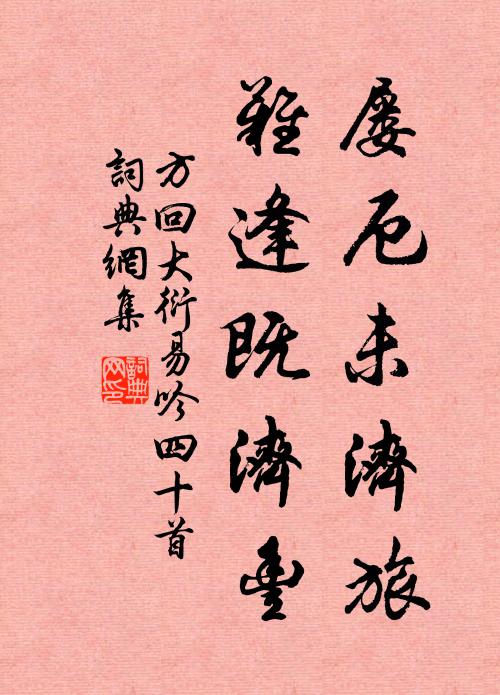 屡厄未濟旅
難逢既濟豐
方回大衍易吟四十首
詞典網集
詞典網印